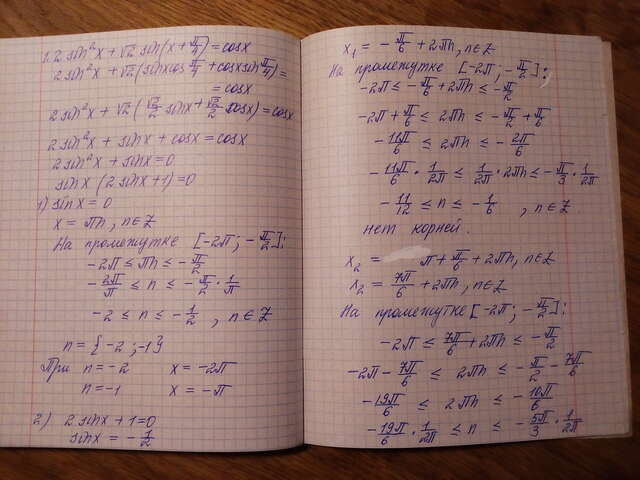 1. 2 sin²x + √2 sin(x + π/4) = cosx
2 sin²x + √2 (sinx cos π/4 + cosx sin π/4) =
= cosx
2 sin²x + √2 (√2/2 sinx + √2/2 cosx) = cosx
2 sin²x + sinx + cosx = cosx
2 sin²x + sinx = 0
sinx (2 sinx + 1) = 0
1) sinx = 0
x = πn, n∈Z
На промежутке [-2π; -π/2]:
-2π ≤ πn ≤ -π/2
-2π/π ≤ n ≤ -π/2 · 1/π
-2 ≤ n ≤ -1/2 , n∈Z
n = {-2; -1}
При n = -2 x = -2π
n = -1 x = -π
2) 2 sinx + 1 = 0
sinx = -1/2
x₁ = -π/6 + 2πn, n∈Z
На промежутке [-2π; -π/2]:
-2π ≤ -π/6 + 2πn ≤ -π/2
-2π + π/6 ≤ 2πn ≤ -π/2 + π/6
-11π/6 ≤ 2πn ≤ -2π/6
-11π/6 · 1/2π ≤ 1/2π · 2πn ≤ -π/3 · 1/2π
-11/12 ≤ n ≤ -1/6 , n∈Z
нет корней.
x₂ = π + π/6 + 2πn, n∈Z
x₂ = 7π/6 + 2πn, n∈Z
На промежутке [-2π; -π/2]:
-2π ≤ 7π/6 + 2πn ≤ -π/2
-2π - 7π/6 ≤ 2πn ≤ -π/2 - 7π/6
-19π/6 ≤ 2πn ≤ -10π/6
-19π/6 · 1/2π ≤ n ≤ -5π/3 · 1/2π